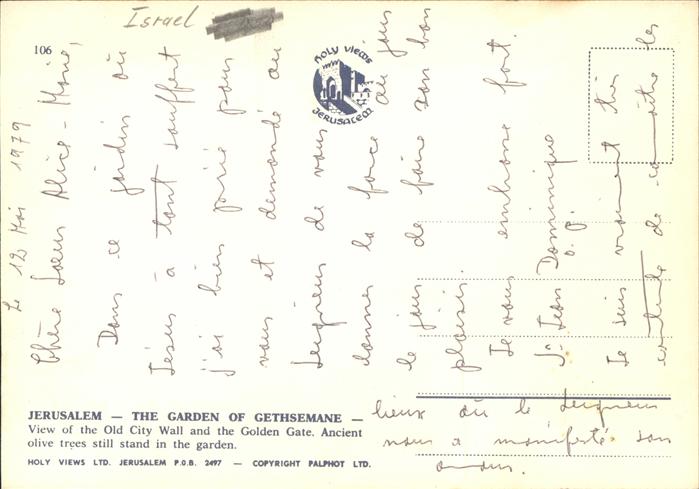 Israel
106
HOLY VIEWS
JERUSALEM
Le 12 Mai 1979
Chère Soeur Alice-Marie,
Dans ce jardin où
Jésus a tant souffert
j'ai bien prié pour
vous et demandé au
Seigneur de vous
donner la force au jour
le jour de faire son bon
plaisir.
Je vous embrasse fort.
Sr Jean Dominique
o.p.
Je suis vraiment très
contente de connaître les
lieux où le Seigneur
nous a manifesté son
amour.
JERUSALEM — THE GARDEN OF GETHSEMANE —
View of the Old City Wall and the Golden Gate. Ancient
olive trees still stand in the garden.
HOLY VIEWS LTD. JERUSALEM P.O.B. 2497 — COPYRIGHT PALPHOT LTD.